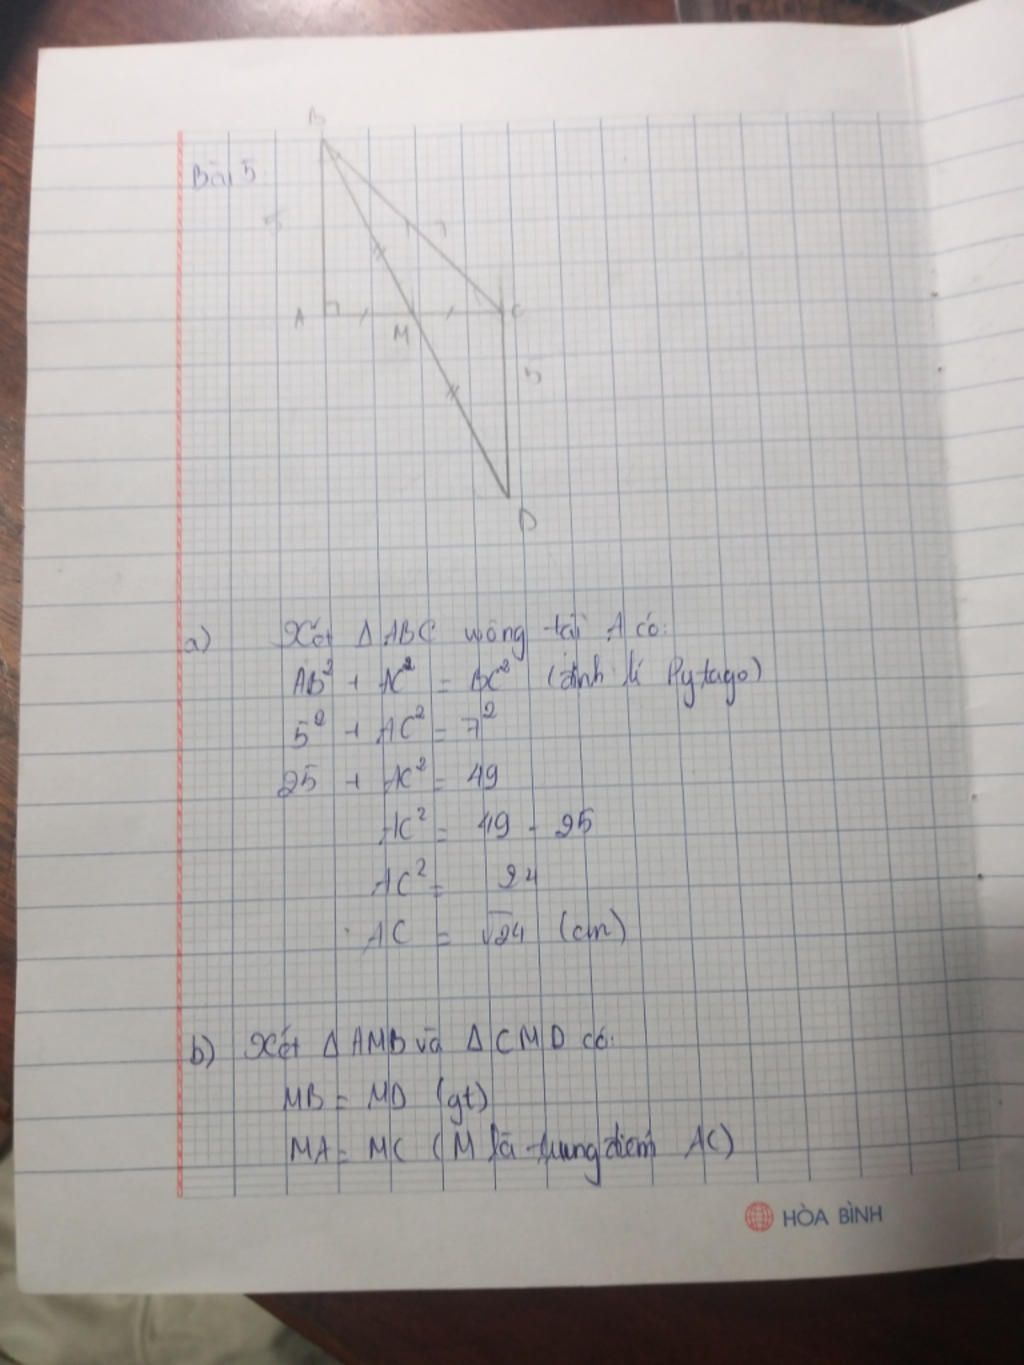 Bài 5
B
5
7
A
M
C
5
D
a) Xét Δ ABC vuông tại A có:
AB² + AC² = BC² (định lí Pytago)
5² + AC² = 7²
25 + AC² = 49
AC² = 49 - 25
AC² = 24
AC = √24 (cm)
b) Xét Δ AMB và Δ CMD có:
MB = MD (gt)
MA = MC (M là trung điểm AC)
HÒA BÌNH